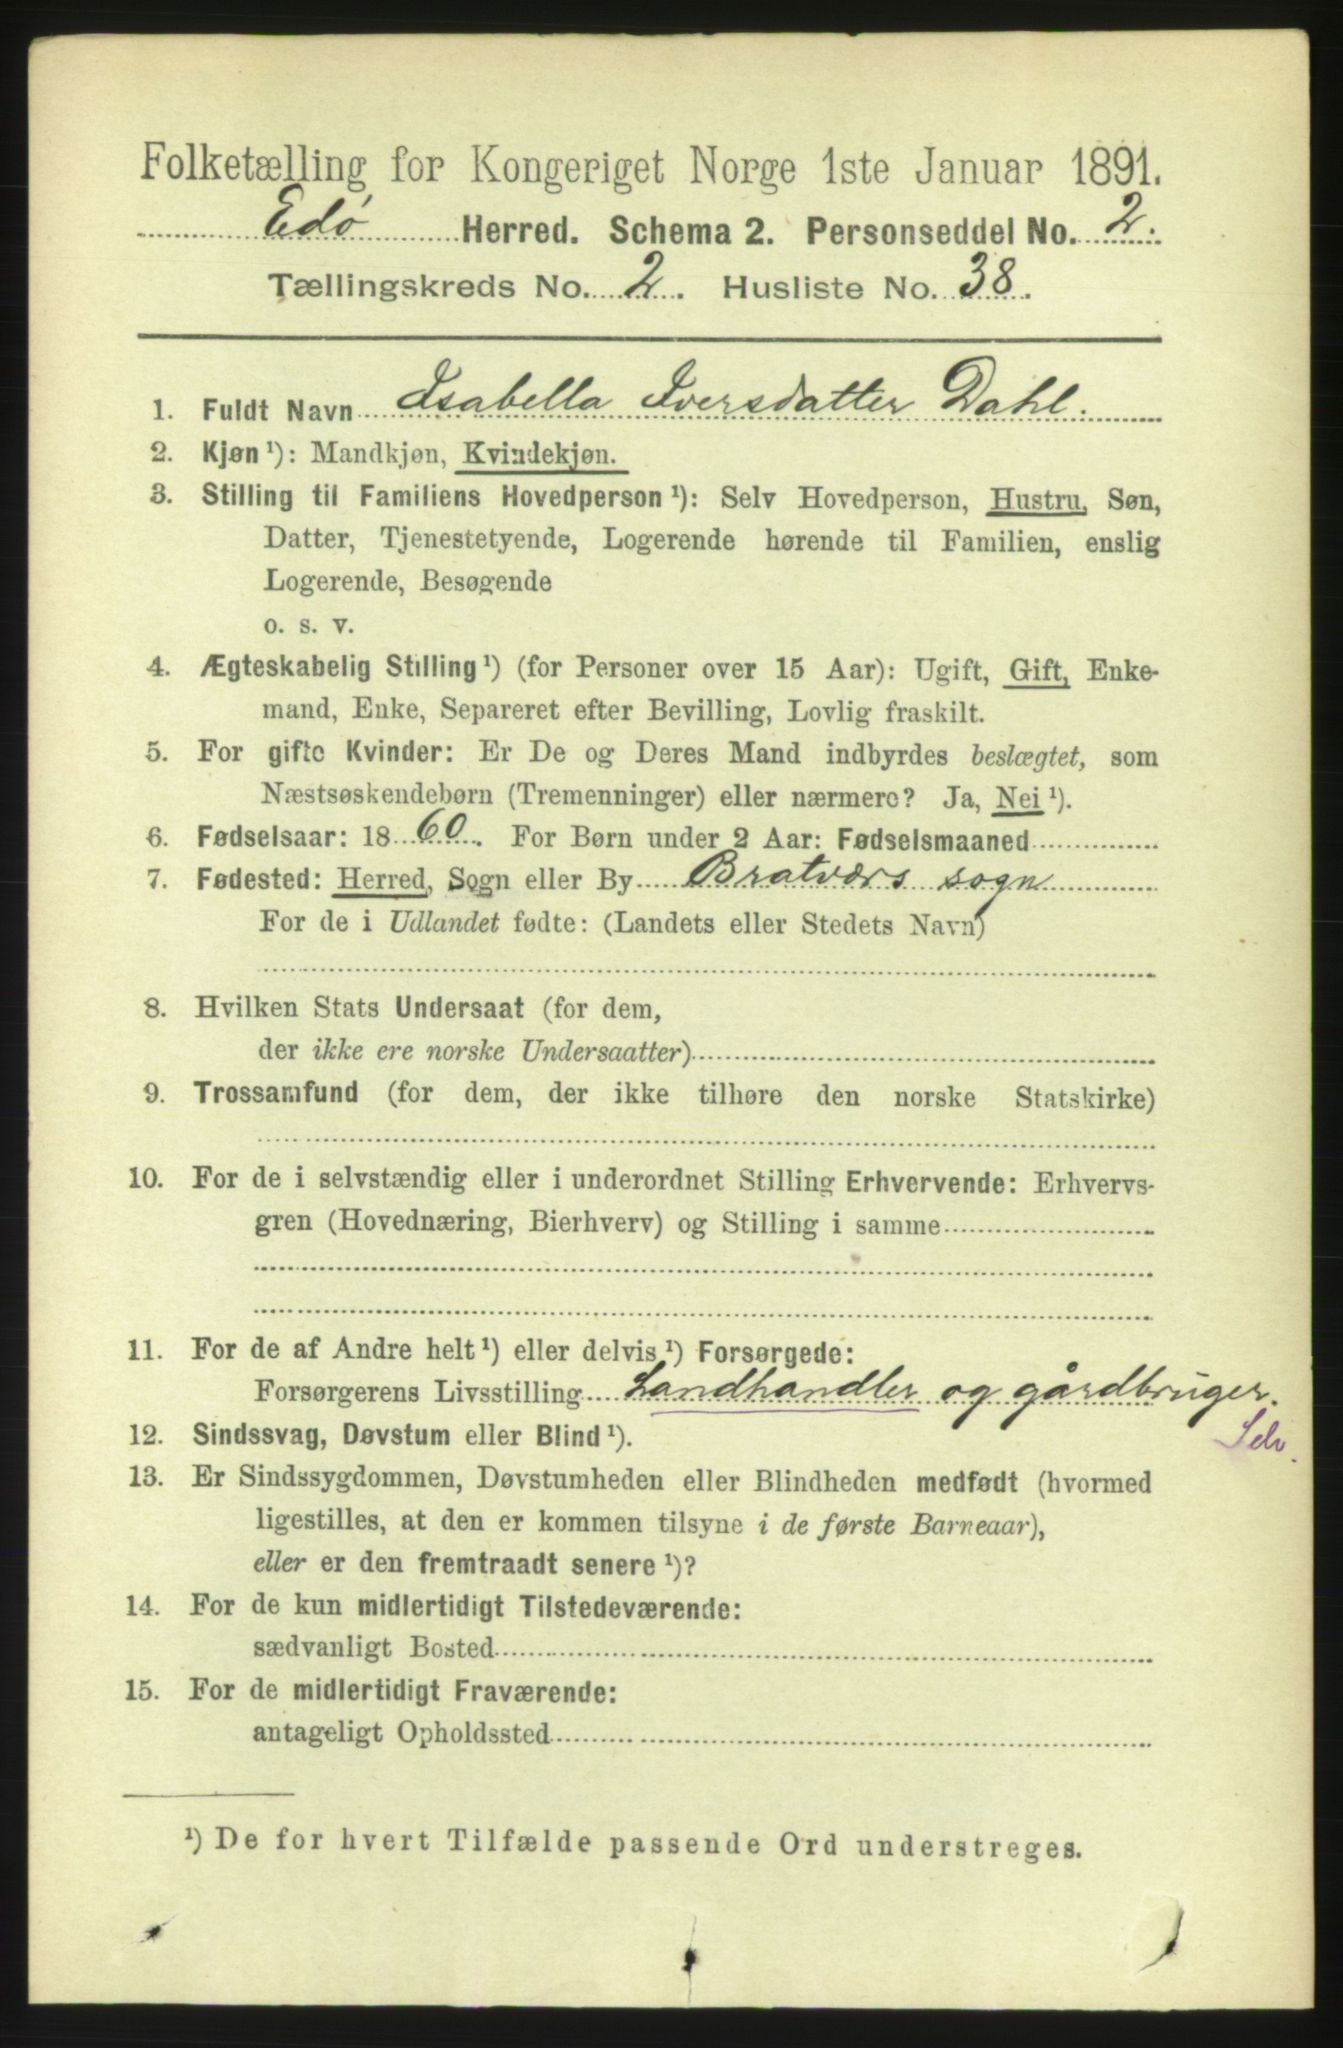 Folketælling for Kongeriget Norge 1ste Januar 1891.
Edø Herred. Schema 2. Personseddel No. 2.
Tællingskreds No. 2. Husliste No. 38.
1. Fuldt Navn Isabella Iversdatter Dahl.
2. Kjøn ¹): Mandkjøn, Kvindekjøn.
3. Stilling til Familiens Hovedperson ¹): Selv Hovedperson, Hustru, Søn,
Datter, Tjenestetyende, Logerende hørende til Familien, enslig
Logerende, Besøgende
o. s. v.
4. Ægteskabelig Stilling ¹) (for Personer over 15 Aar): Ugift, Gift, Enke-
mand, Enke, Separeret efter Bevilling, Lovlig fraskilt.
5. For gifte Kvinder: Er De og Deres Mand indbyrdes beslægtet, som
Næstsøskendebørn (Tremenninger) eller nærmere? Ja, Nei ¹).
6. Fødselsaar: 1860. For Børn under 2 Aar: Fødselsmaaned
7. Fødested: Herred, Sogn eller By Bratværs sogn
For de i Udlandet fødte: (Landets eller Stedets Navn)
8. Hvilken Stats Undersaat (for dem,
der ikke ere norske Undersaatter)
9. Trossamfund (for dem, der ikke tilhøre den norske Statskirke)
10. For de i selvstændig eller i underordnet Stilling Erhvervende: Erhvervs-
gren (Hovednæring, Bierhverv) og Stilling i samme
11. For de af Andre helt ¹) eller delvis ¹) Forsørgede:
Forsørgerens Livsstilling Landhandler og gårdbruger.
Selv.
12. Sindssvag, Døvstum eller Blind ¹).
13. Er Sindssygdommen, Døvstumheden eller Blindheden medfødt (hvormed
ligestilles, at den er kommen tilsyne i de første Barneaar),
eller er den fremtraadt senere ¹)?
14. For de kun midlertidigt Tilstedeværende:
sædvanligt Bosted
15. For de midlertidigt Fraværende:
antageligt Opholdssted
¹) De for hvert Tilfælde passende Ord understreges.